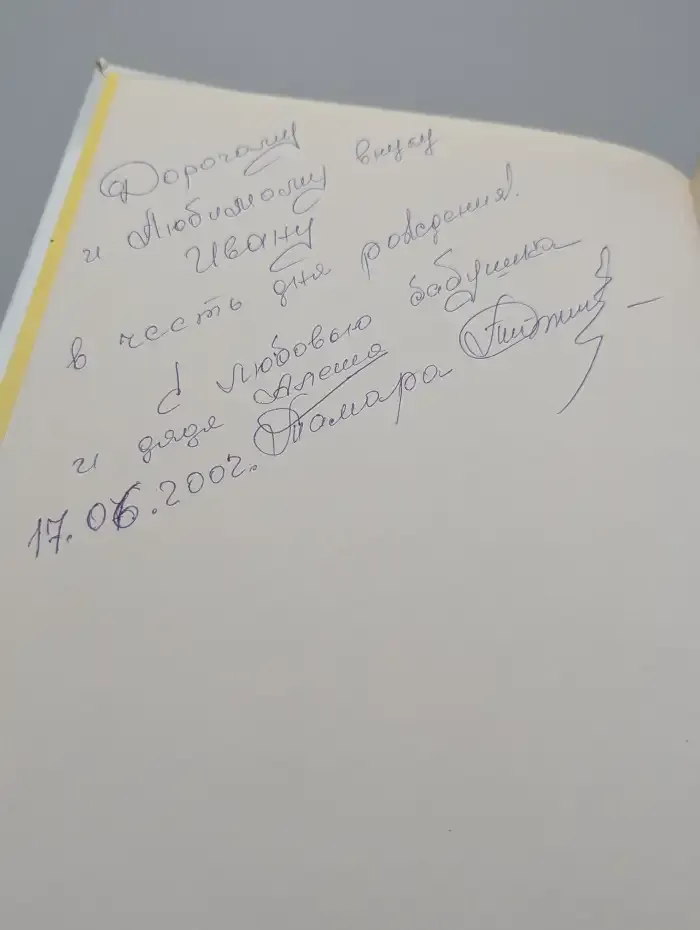 Дорогому
и Любимому внуку
Ивану
в честь дня рождения!
С любовью бабушка
и дядя Алеша
Тамара
17.06.2002.